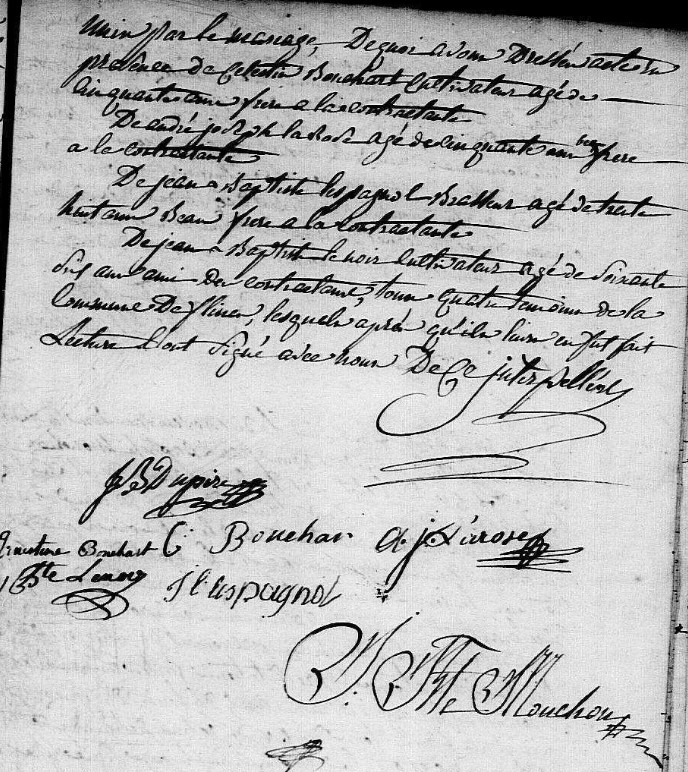 unin par le mariage, De quoi avons Dressé acte en
presence De Celestin Bouchart Cultivateur agé de
Cinquante ans frere a la contractante
De andré joseph laRose agé de cinquante ans beau frere
a la contractante
De jean-Baptiste lespagnol Brasseur agé de trente
huit ans Beau frere a la contractante
De jean-Baptiste lenoir Cultivateur agé de soixante
six ans ami des contractans, tous quatre temoins de la
Commune De flines, lesquels après qu'il leur en fut fait
Lecture l'ont signé avec nous De Ce interpellés
JB Dupire
C Bouchar a j Larose
Bouchart
Bte Lenoir J lespagnol
J. Bte Mouchon